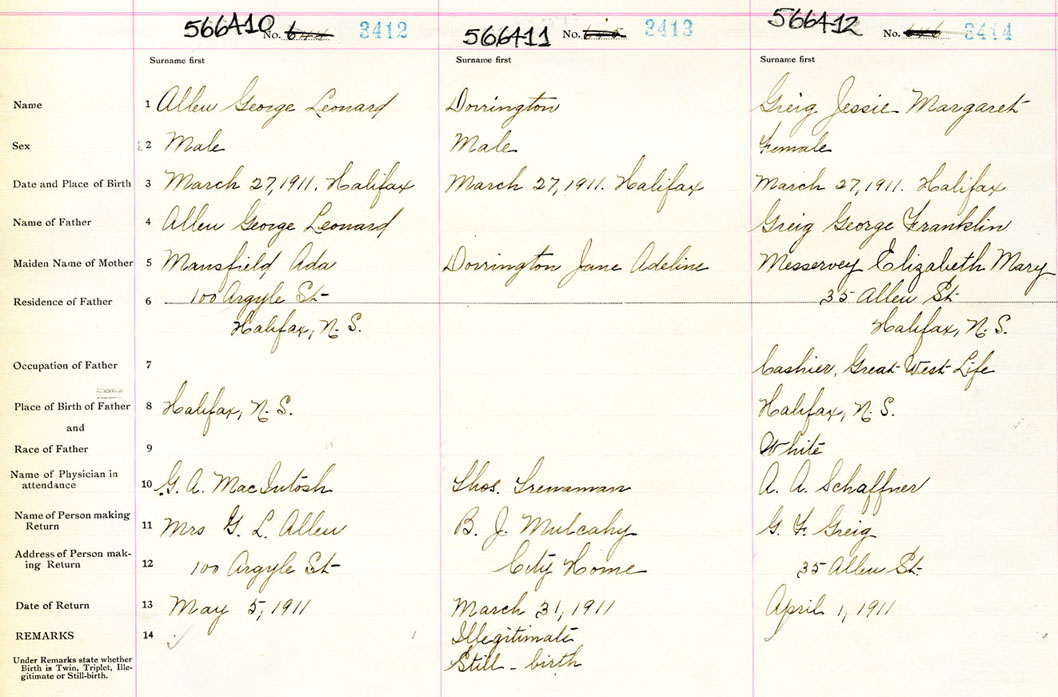 566410 No. 3412 566411 No. 3413 566412 No. 3414
Surname first Surname first Surname first
Name 1 Allen George Leonard Dorrington Greig Jessie Margaret
Sex 2 Male Male Female
Date and Place of Birth 3 March 27, 1911. Halifax March 27, 1911. Halifax March 27, 1911. Halifax
Name of Father 4 Allen George Leonard Greig George Franklin
Maiden Name of Mother 5 Mansfield Ada Dorrington Jane Adeline Messervey Elizabeth Mary
Residence of Father 6 100 Argyle St- 35 Allen St.
Halifax, N.S. Halifax, N.S.
Occupation of Father 7 Cashier, Great West Life
Place of Birth of Father 8 Halifax, N.S. Halifax, N.S.
and
Race of Father 9 White
Name of Physician in
attendance 10 G. A. MacIntosh Thos. A. A. Schaffner
Name of Person making
Return 11 Mrs G. L. Allen B. J. Mulcahy G. F. Greig
Address of Person mak-
ing Return 12 100 Argyle St- City Home 35 Allen St.
Date of Return 13 May 5, 1911 March 31, 1911 April 1, 1911
REMARKS 14 Illegitimate
Under Remarks state whether
Birth is Twin, Triplet, Ille-
gitimate or Still-birth. Still-birth